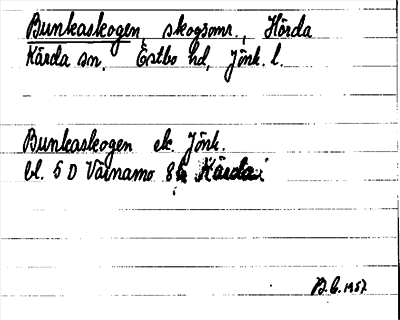 Bunkaskogen, skogsomr., Hörda
Kärda sn, Östbo hd, Jönk. l.
Bunkaskogen ek. Jönk.
bl. 5 D Värnamo 8h Kärda
B.C. 1957